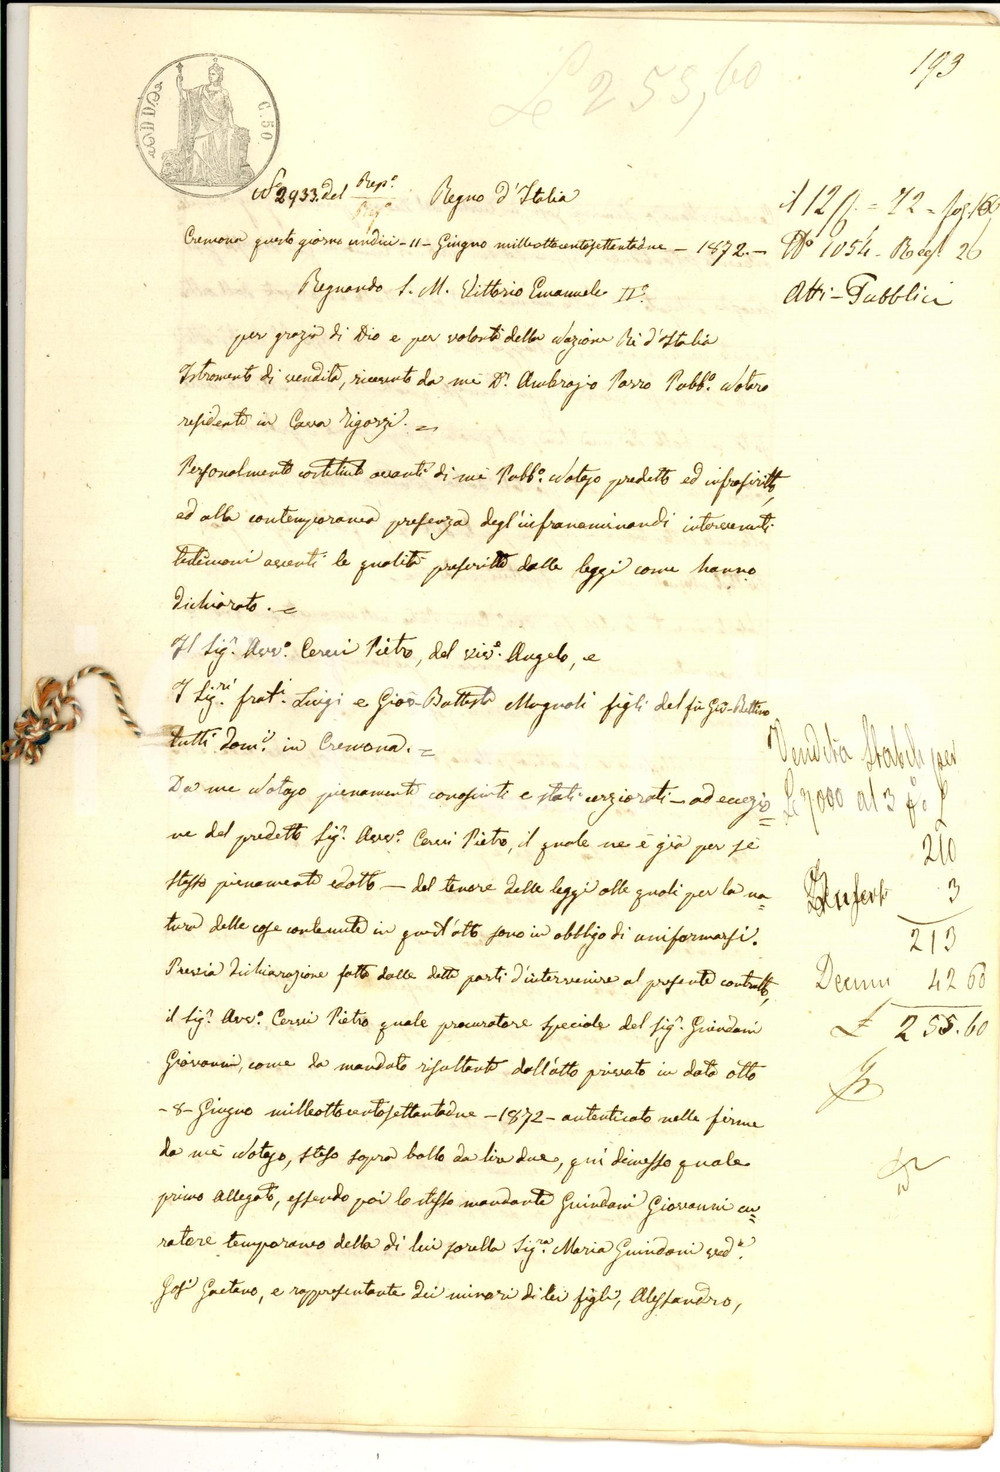 193
£ 255,60
C. 50
N° 2933. del Rep.° Regno d'Italia
Cremona questo giorno undici - 11 - Giugno milleottocentosettantadue - 1872. -
Regnando S. M. Vittorio Emanuele II°
per grazia di Dio e per volontà della Nazione Re d'Italia
Istromento di vendita, ricevuto da me D.r Ambrogio Pubb.° Notaro
residente in Cava Tigozzi. =
Personalmente costituti avanti di me Pubb.° Notajo predetto ed infrascritto,
ed alla contemporanea presenza degl'infranominandi intervenuti
testimoni aventi le qualità prescritte dalle leggi come hanno
dichiarato. =
Il Sig.r Avv.° Cervi Pietro, del viv.e Angelo, e
I Sig.ri frat.i Luigi e Giov-Battista Magnoli figli del fu Gio-Battista
tutti dom.i in Cremona. =
Da me Notajo pienamente conosciuti e stati cerziorati - ad eccezio=
ne del predetto Sig.r Avv.° Cervi Pietro, il quale ne è già per sé
stesso pienamente edotto - del tenore delle leggi alle quali per la na=
tura delle cose contenute in quest'atto sono in obbligo di uniformarsi.
Previa dichiarazione fatta dalle dette parti d'intervenire al presente contratto,
il Sig.r Avv.° Cervi Pietro quale procuratore speciale del Sig.r Guindani
Giovanni, come da mandato risultante dall'atto privato in data otto
- 8 - Giugno milleottocentosettantadue - 1872 - autenticato nelle firme
da me Notajo, steso sopra bollo da lire due, qui dimesso quale
primo allegato, essendo poi lo stesso mandante Guindani Giovanni cu=
ratore temporaneo della di lui sorella Sig.ra Maria Guindani ved.a
Gaetano, e rappresentante dei minori di lei figli, Alessandro,
il 12 = 72 - fog. 160
N° 1054 - Reg.° 26
Atti - Pubblici
Vendita Stabili per
£ 7000 al 3 p% £
210
3
213
Decimi 42 60
£ 255.60